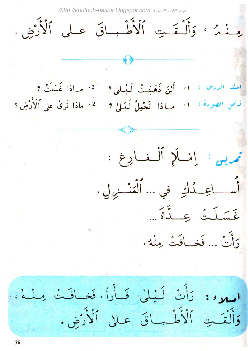 مِنْهُ، وَأَلْقَتِ الْأَطْبَاقَ عَلَى الْأَرْضِ.
1- أَيْنَ ذَهَبَتْ لَيْلَى؟ 2- مَاذَا غَسَلَتْ؟
1- مَاذَا تَحْمِلُ لَيْلَى؟ 2- مَاذَا تَرَى عَلَى الْأَرْضِ؟
تمرين: إِمْلَأِ الْفَارِغَ:
أُسَاعِدُكِ فِي ... الْمَنْزِلِ.
غَسَلَتْ عِدَّةَ ...
رَأَتْ ... فَخَافَتْ مِنْهُ.
إملاء: رَأَتْ لَيْلَى فَأْرًا، فَخَافَتْ مِنْهُ،
وَأَلْقَتِ الْأَطْبَاقَ عَلَى الْأَرْضِ.